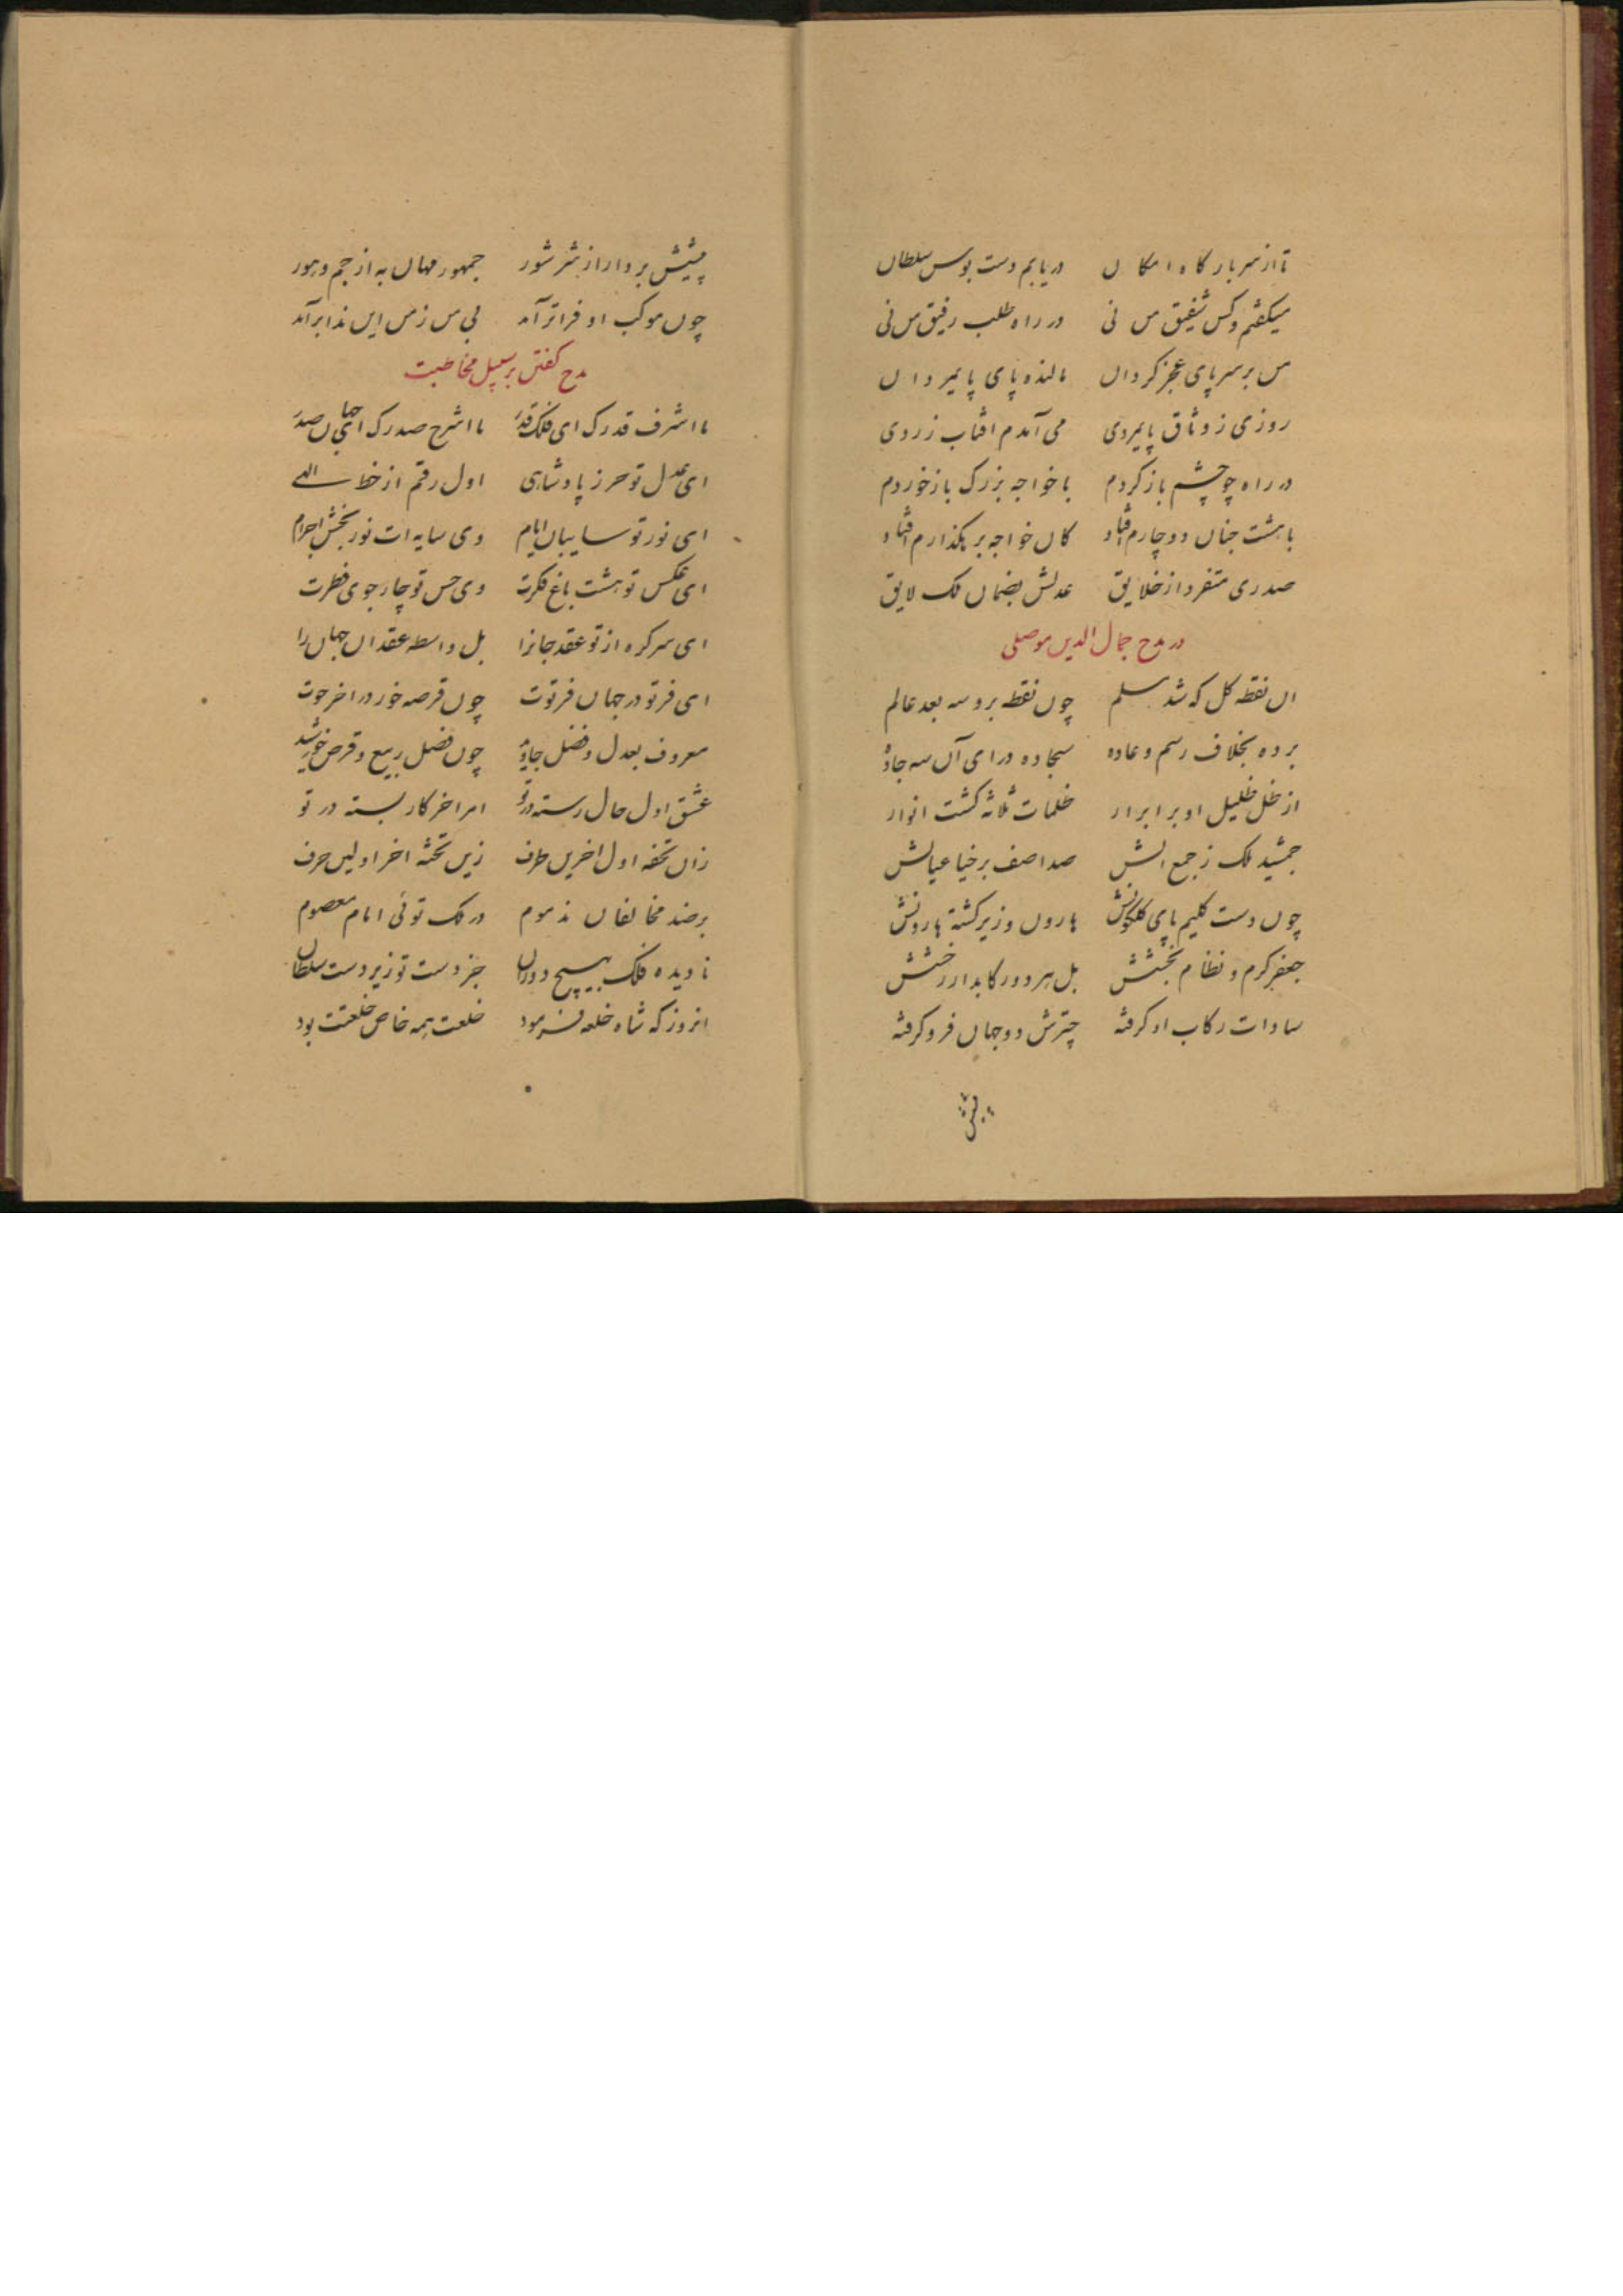 تا از سر بارگاه امکان در یابم دست بوس سلطان
میکفتم و کس شفیق من نی در راه طلب رفیق من نی
من بر سر پای عجز کردان مالنده پای پایمردان
روزی ز وثاق پایمردی می آمدم افتاب زردی
در راه چو چشم باز کردم با خواجه بزرک باز خوردم
با هشت جنان دوچارم افتاد کان خواجه بر بکذارم افتاد
صدری متفرد از خلایق عدلش بضمان ملک لایق
در مدح جمال الدین موصلی
ان نقطه کل که شد مسلم چون نقطه برو سه بعد عالم
برده بخلاف رسم و عاده سجاده ورای آن سه جاده
از ظل ظلیل او بر ابرار ظلمات ثلاثه کشت انوار
جمشید ملک ز جمع الش صد اصف برخیا عیالش
چون دست کلیم پای کلکونش هارون وزیر کشته هارونش
جعفر کرم و نظام بخشش بل هر دو رکابدار رخشش
سادات رکاب او کرفته چترش دو جهان فرو کرفته
پیش
پیشش بردار از شر شور جمهور مهان به از جم و هور
چون موکب او فراتر آمد بی من ز من این ندا برآمد
مدح کفتن بر سبیل مخاطبت
ما اشرف قدرک ای فلک قدر ما اشرح صدرک ای جهان صدر
ای عدل تو حرز پادشاهی اول رقم از خط الهی
ای نور تو سایبان ایام وی سایه ات نور بخش اجرام
ای عکس تو هشت باغ فکرت وی حس تو چار جوی فطرت
ای سرکره از تو عقد جانرا بل واسطه عقد ان جهان را
ای فر تو در جهان فرتوت چون قرصه خور در اخر حوت
معروف بعدل و فضل جاوید چون فصل ربیع و قرص خورشید
عشق اول حال رسته در تو امر اخر کار بسته در تو
زان تحفه اول اخرین طرف زین تخته اخر اولین حرف
بر ضد مخالفان مذموم در ملک توئی امام معصوم
نادیده فلک بهیچ دوران جز دست تو زیر دست سلطان
انروز که شاه خلعه فرمود خلعت همه خاص خلعتت بود